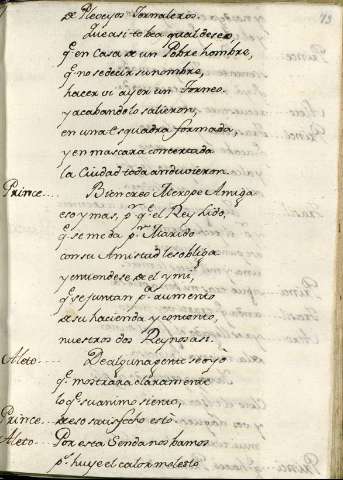 73
de Plebeyos Jornaleros.
que asi te vea qual deseo
q̃ en Casa de un Pobre hombre,
q̃ no se decir su nombre,
hacer vi ayer un Torneo.
y acabandolo salieron,
en una esquadra formada
y en mascara concertada
la Ciudad toda anduvieron.
Prince.... Bien creo Merope Amiga
eso y mas, pr. q̃ el Rey Lido,
q̃ se me da pr. Marido
con su Amistad les obliga
y entiendese de el y mi,
q̃ se juntan pa. aumento
de su hacienda y contento,
nuestros dos Reynos asi.
Aleto.... De alguna gente se oye
q̃ mostrara claramente
lo q̃ su animo siente,
Prince... de eso satisfecho estó.
Aleto... Por esta Senda nos bamos
pr. huir el calor molesto